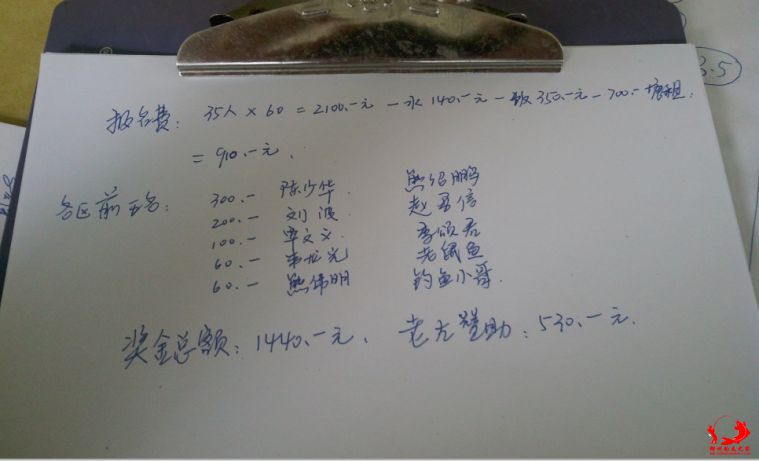 报名费: 35人×60=2100.-元-水140.-元-饭350.-元-700.-塘租.
=910.-元.
各区前五名: 300.- 陈少华. 熊绍鹏
200.- 刘波 赵君信
100.- 覃文义. 李颂君
60.- 韦龙光 老鼠鱼
60.- 熊伟明 钓鱼小哥.
奖金总额: 1440.-元. 老左赞助: 530.-元.